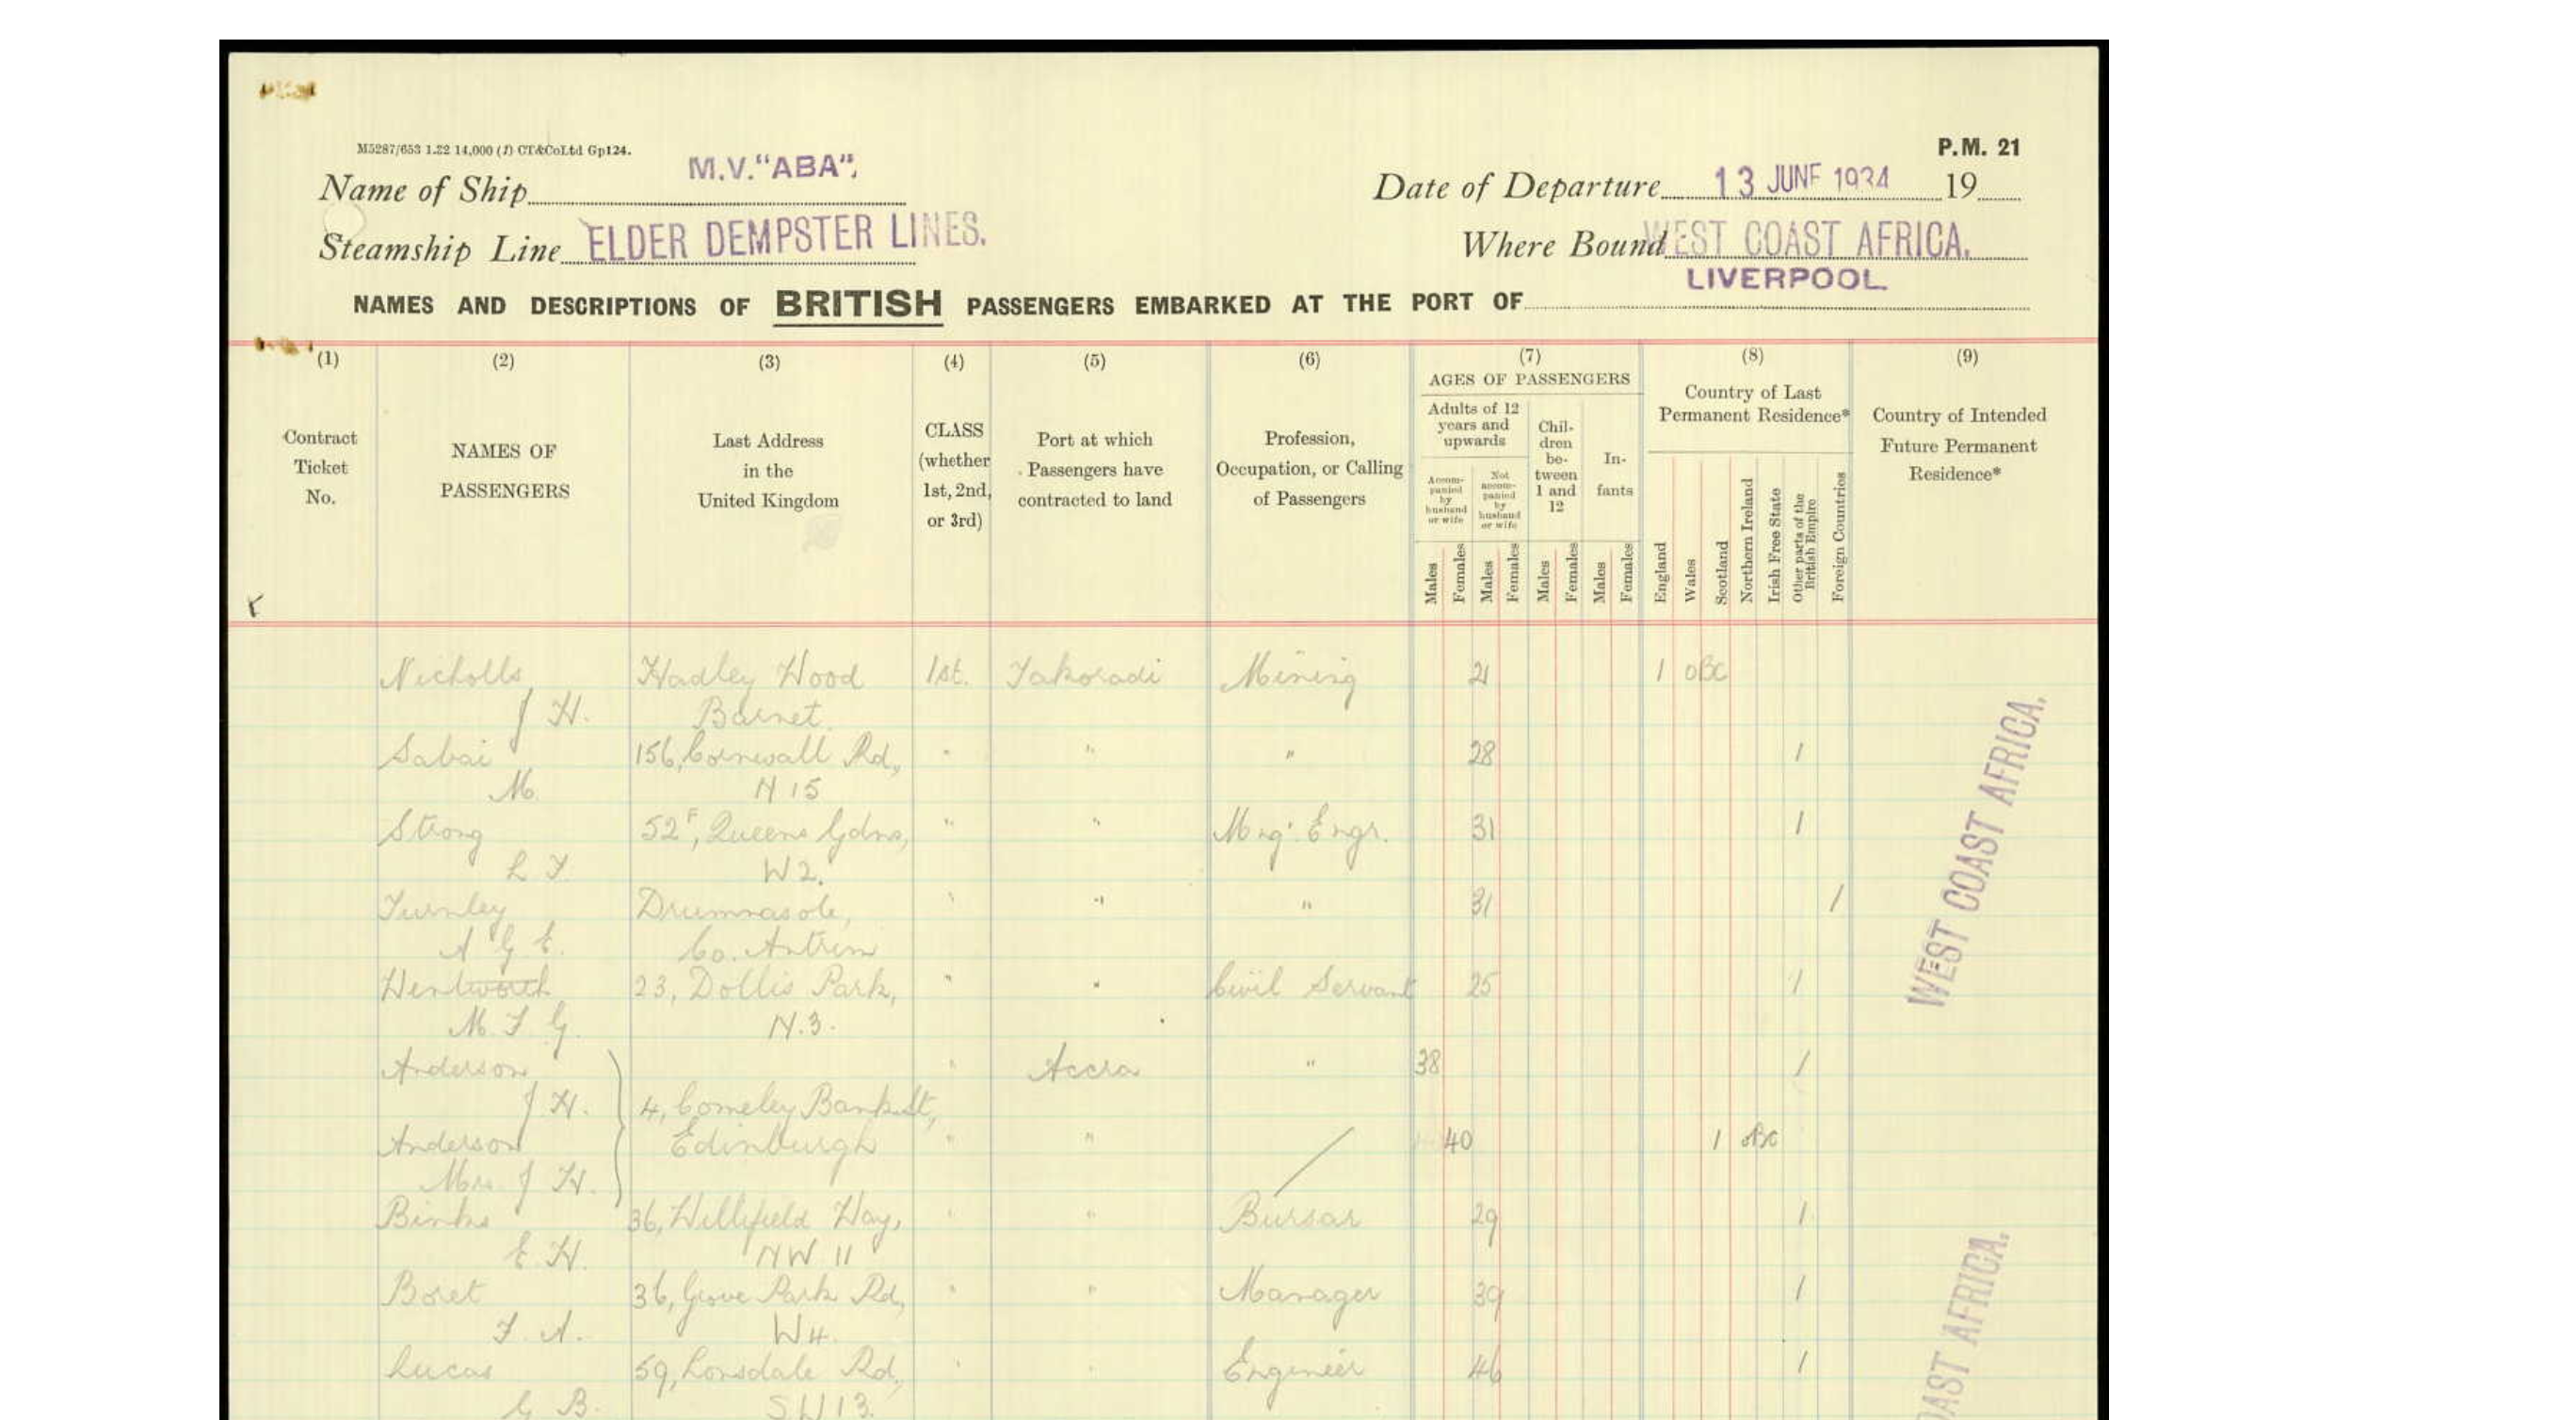 M5287/653 1.22 14,000 (1) CT&CoLtd Gp124.
P.M. 21
Name of Ship M.V. "ABA".
Date of Departure 13 JUNE 1934 19
Steamship Line ELDER DEMPSTER LINES.
Where Bound WEST COAST AFRICA.
NAMES AND DESCRIPTIONS OF BRITISH PASSENGERS EMBARKED AT THE PORT OF LIVERPOOL.
(1) (2) (3) (4) (5) (6) (7) (8) (9)
Contract Ticket No.
NAMES OF PASSENGERS
Last Address in the United Kingdom
CLASS (whether 1st, 2nd, or 3rd)
Port at which Passengers have contracted to land
Profession, Occupation, or Calling of Passengers
AGES OF PASSENGERS
Adults of 12 years and upwards
Accompanied by husband or wife
Not accompanied by husband or wife
Children between 1 and 12
Infants
Males Females Males Females Males Females Males Females
Country of Last Permanent Residence*
England Wales Scotland Northern Ireland Irish Free State Other parts of the British Empire Foreign Countries
Country of Intended Future Permanent Residence*
Nicholls Hadley Wood 1st. Takoradi Mining 21 1 OBC
J H. Barnet.
Sabai 156, Cornwall Rd, " " " 28 1
M. N 15
Strong 52F, Queens Gdns, " " Mng. Engr. 31 1
L F. W2.
Turnley Drumnasole, " " " 31 1
A G E. Co. Antrim
Wentworth 23, Dollis Park, " " Civil Servant 25 1
M. F G. N.3.
Anderson " Accra " 38 1
J H. 4, Comeley Bank St,
Anderson Edinburgh " " 40 1 OBC
Mrs J H.
Binks 36, Willifield Way, " " Bursar 29 1
E H. NW 11
Boret 36, Grove Park Rd, " " Manager 39 1
F. A. W4.
Lucas 59, Lonsdale Rd, " " Engineer 46 1
G B. SW13.
WEST COAST AFRICA.
COAST AFRICA.